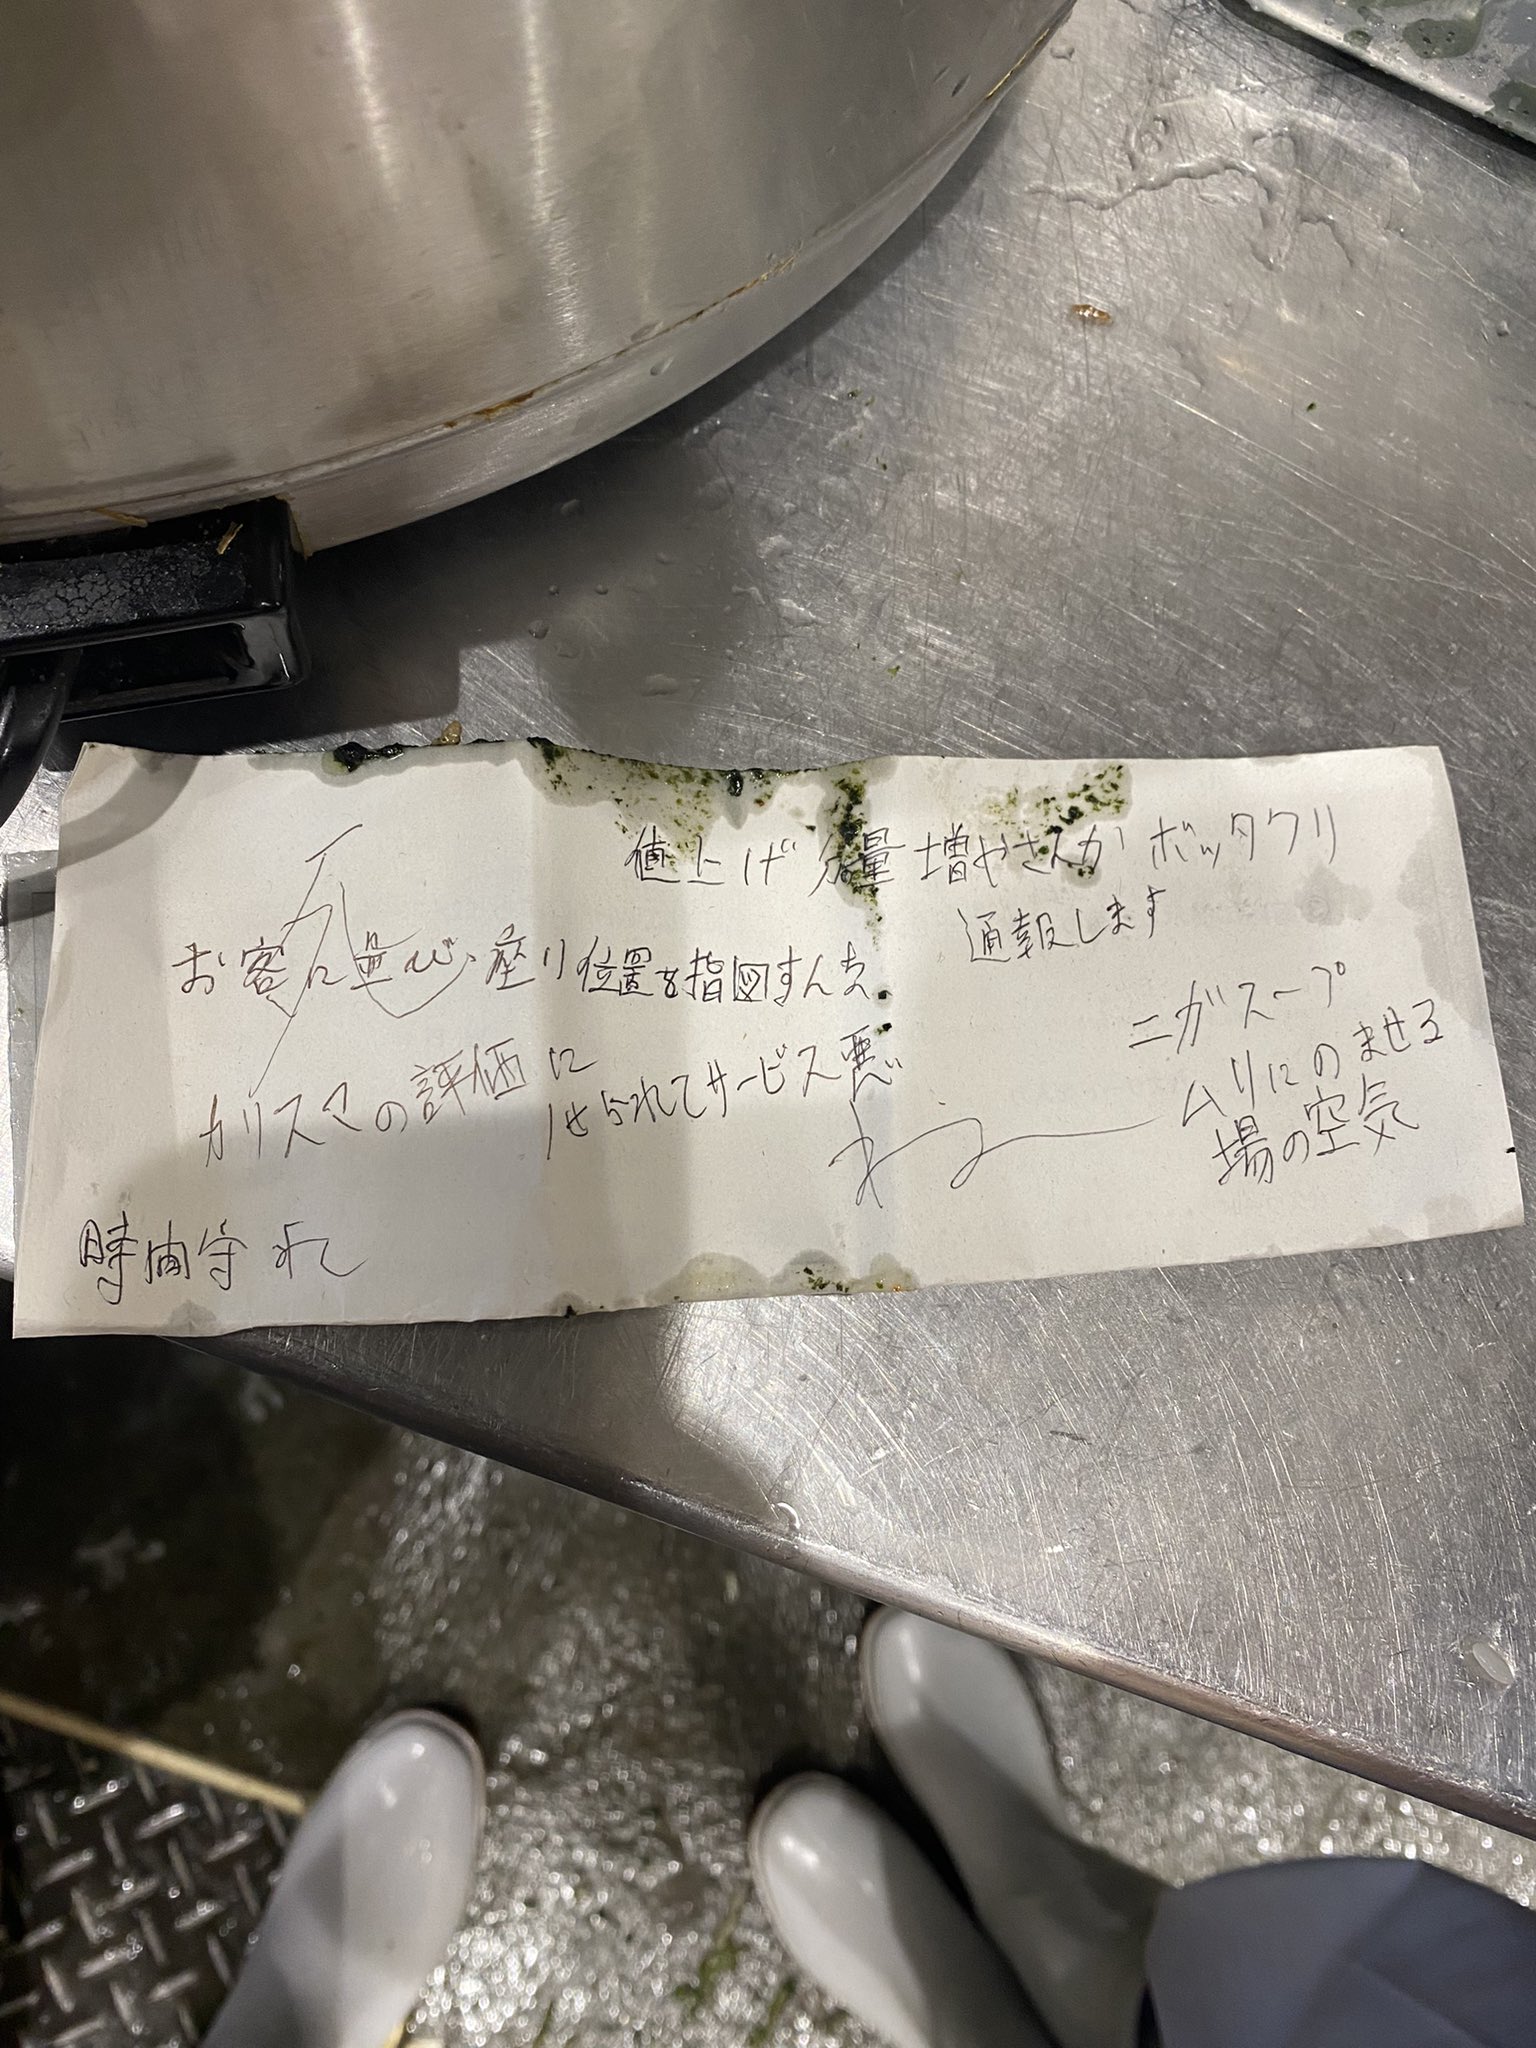 値上げ 分量増やさんか ボッタクリ
通報します
お客に並び、座り位置を指図すんな
ニガスープ
ムリにのませる
場の空気
カリスマの評価に
せられてサービス悪い
時間守れ